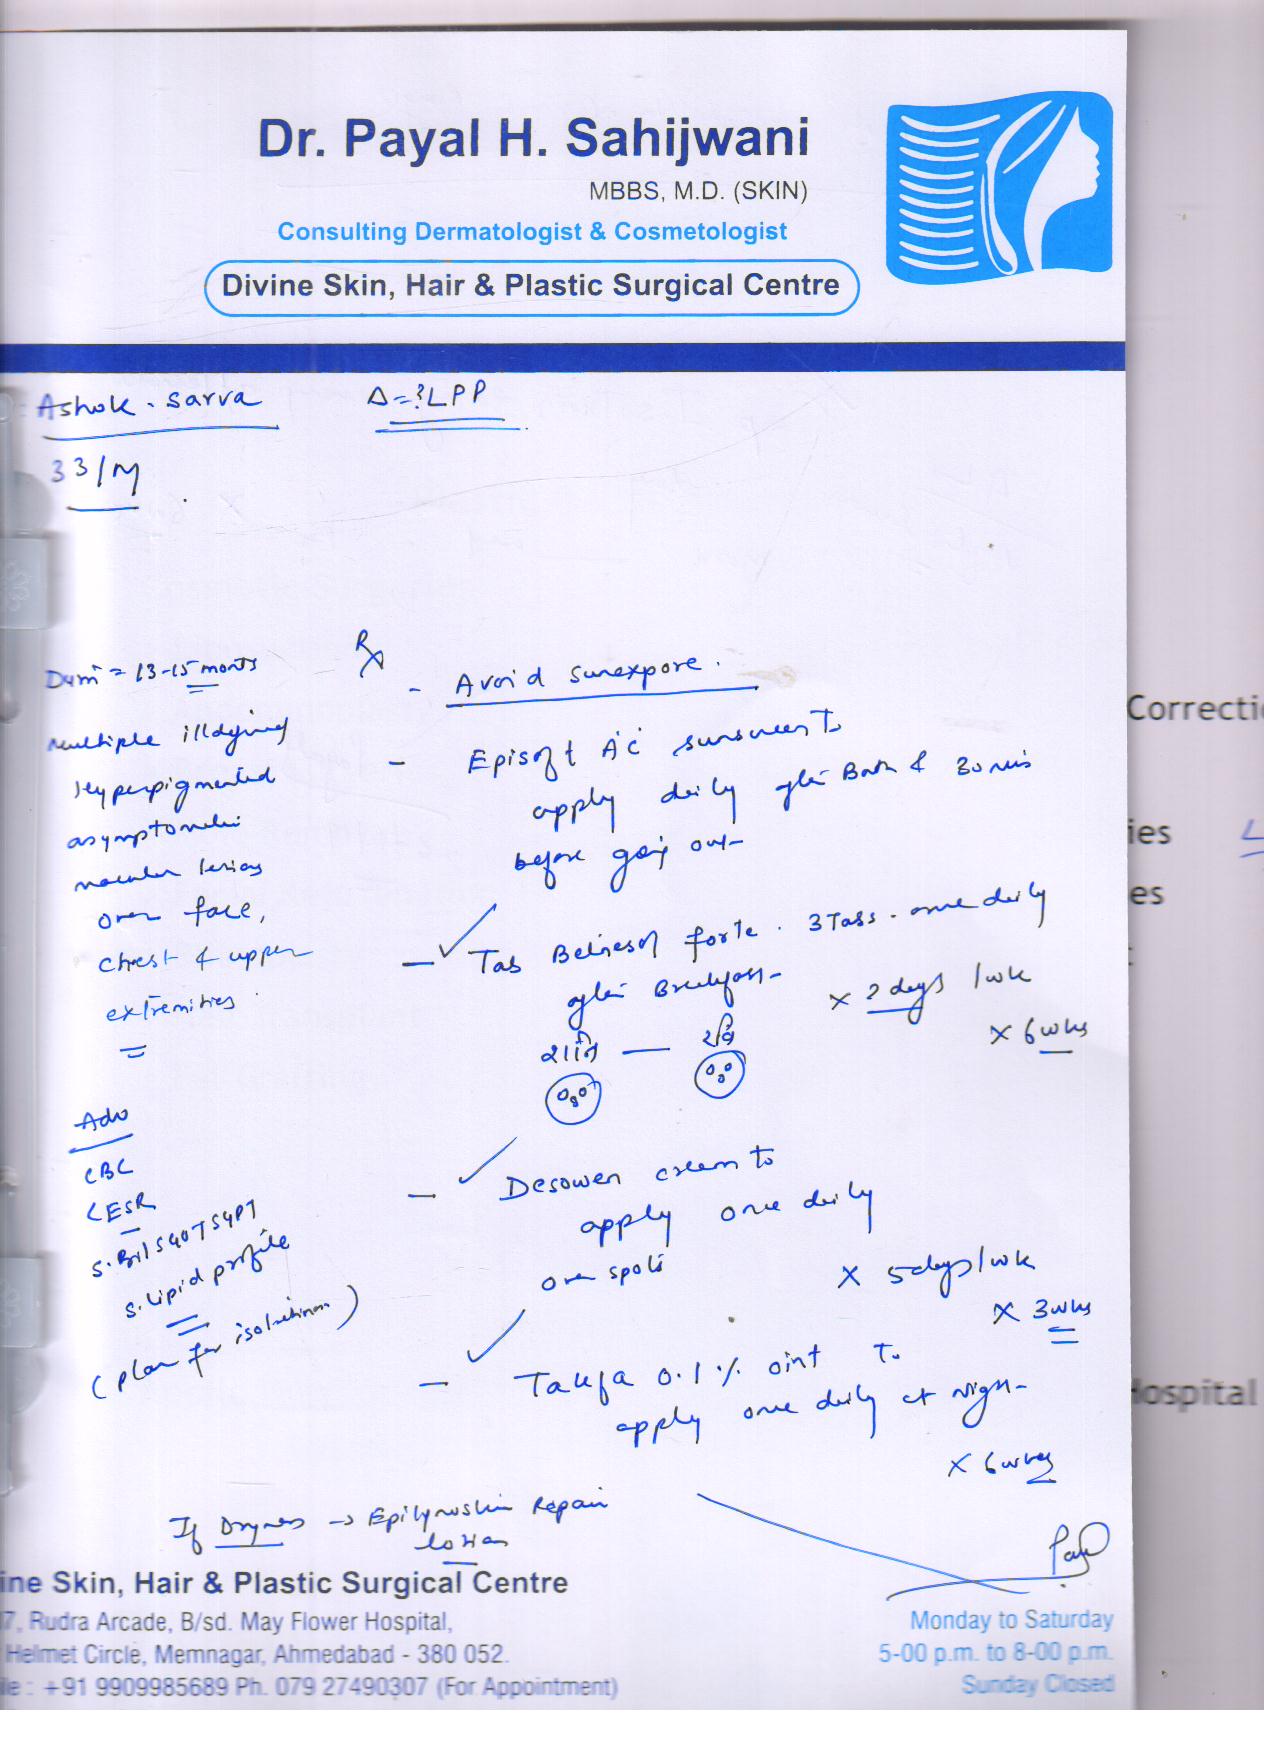 Dr. Payal H. Sahijwani
MBBS, M.D. (SKIN)
Consulting Dermatologist & Cosmetologist
Divine Skin, Hair & Plastic Surgical Centre
Ashok. Sarva
Δ=?LPP
33/M
= 13-15 months
Multiple
Hyperpigmented
macular lesions
over face,
chest & upper
extremities.
Adv
CBC
ESR
S.Bil SGOT SGPT
S. Lipid profile
(plan for
Rx
- Avoid
- Episoft AC sunscreen to
apply daily after Bath & 30 mis
before going out
- Tab forte. 3 Tabs. once daily
after Breakfast
x 2 days /wk
x 6 wks
શનિ — રવિ
- Desowen cream to
apply once daily
over spots
x 5 days/wk
x 3 wks
- 0.1% oint to
apply once daily at night
x 6 wks
If Dryness → Repair
lotion
ine Skin, Hair & Plastic Surgical Centre
7, Rudra Arcade, B/sd. May Flower Hospital,
Helmet Circle, Memnagar, Ahmedabad - 380 052.
le : +91 9909985689 Ph. 079 27490307 (For Appointment)
Monday to Saturday
5-00 p.m. to 8-00 p.m.
Sunday Closed
Correcti
ies
es
ospital